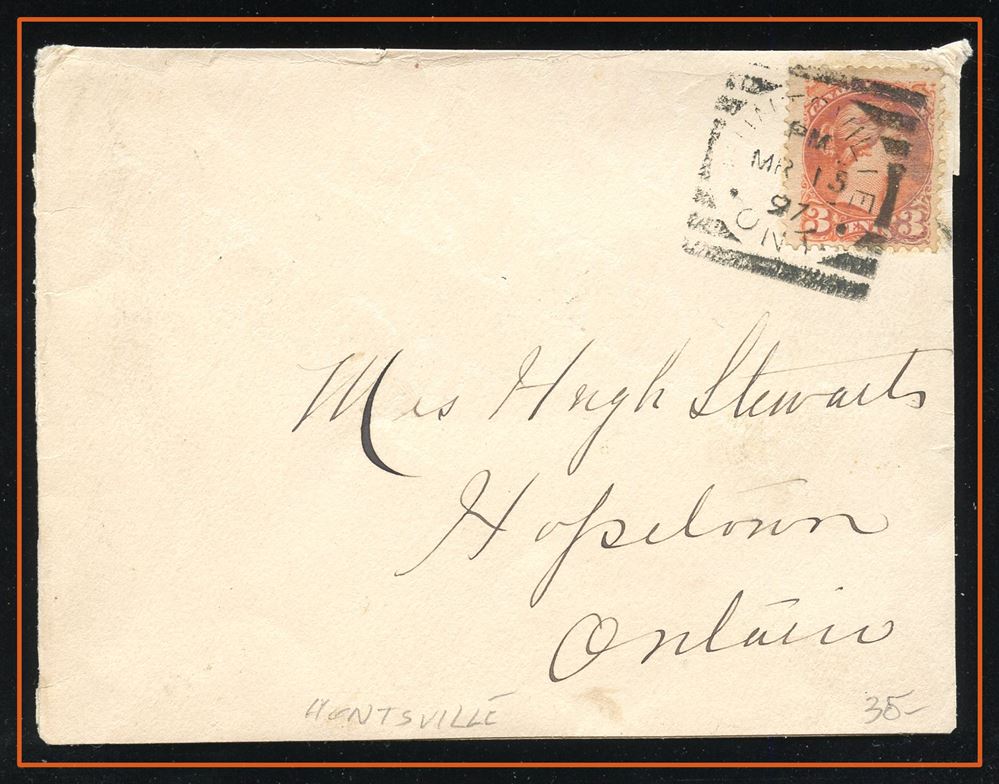 CANADA
PM
MR 15
97
ONT
3 CENTS 3
Mrs Hugh Stewarts
Hopetown
Ontario
HUNTSVILLE 35-